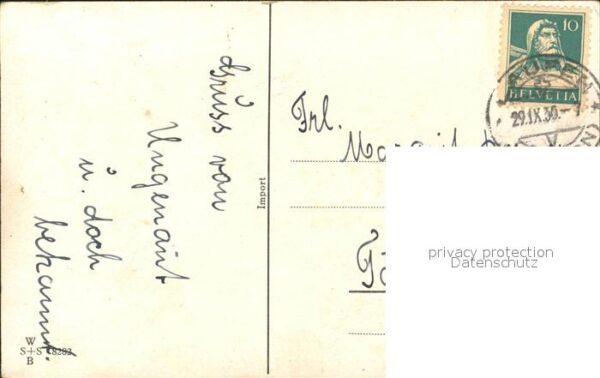 Gruss von
Ungenannt
u. doch
bekannt.
W
S+S 8282
B
Import
10
HELVETIA
29.IX.30.-7
Frl.
privacy protection
Datenschutz